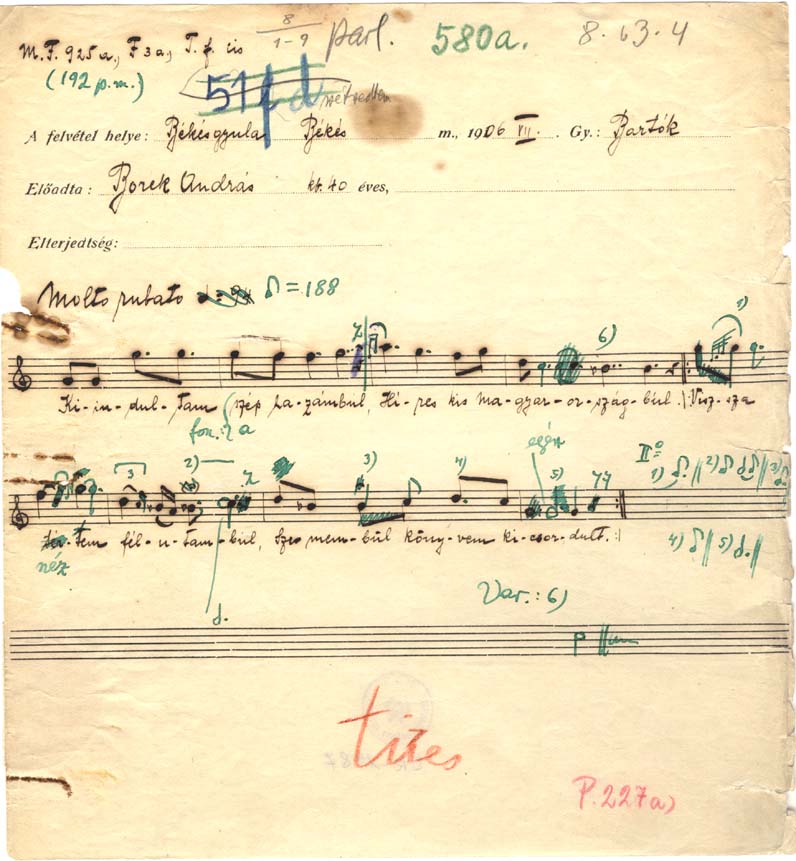 M.F. 925a, F3a, T.f. cis
(192 p.m.)
8
1-9 parl. 580a. 8.63.4
51
A felvétel helye: Békésgyula Békés m., 1906 VII. Gy.: Bartók
Előadta: Borek András kb. 40 éves,
Elterjedtség:
Molto rubato = 188
6) 1)
Ki-in-dul-tam szép ha-zámbul, Hi-res kis ma-gyar-or-szág-búl. Visz-sza
fon.: a
3 2) 3) 4) 5)
II° 1) 2) 3)
-tem fél-u-tam-búl, Sze-mem-bűl köny-vem ki-csor-dult.
néz
4) 5)
Var.: 6)
tizes
P. 227a)